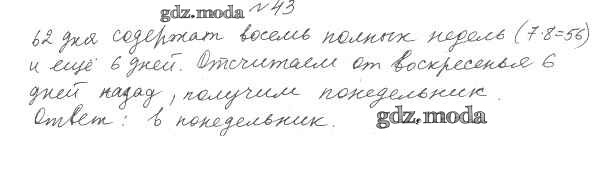 gdz.moda № 43
62 дня содержат восемь полных недель (7·8=56)
и ещё 6 дней. Отсчитаем от воскресенья 6
дней назад, получим понедельник.
Ответ: в понедельник. gdz.moda